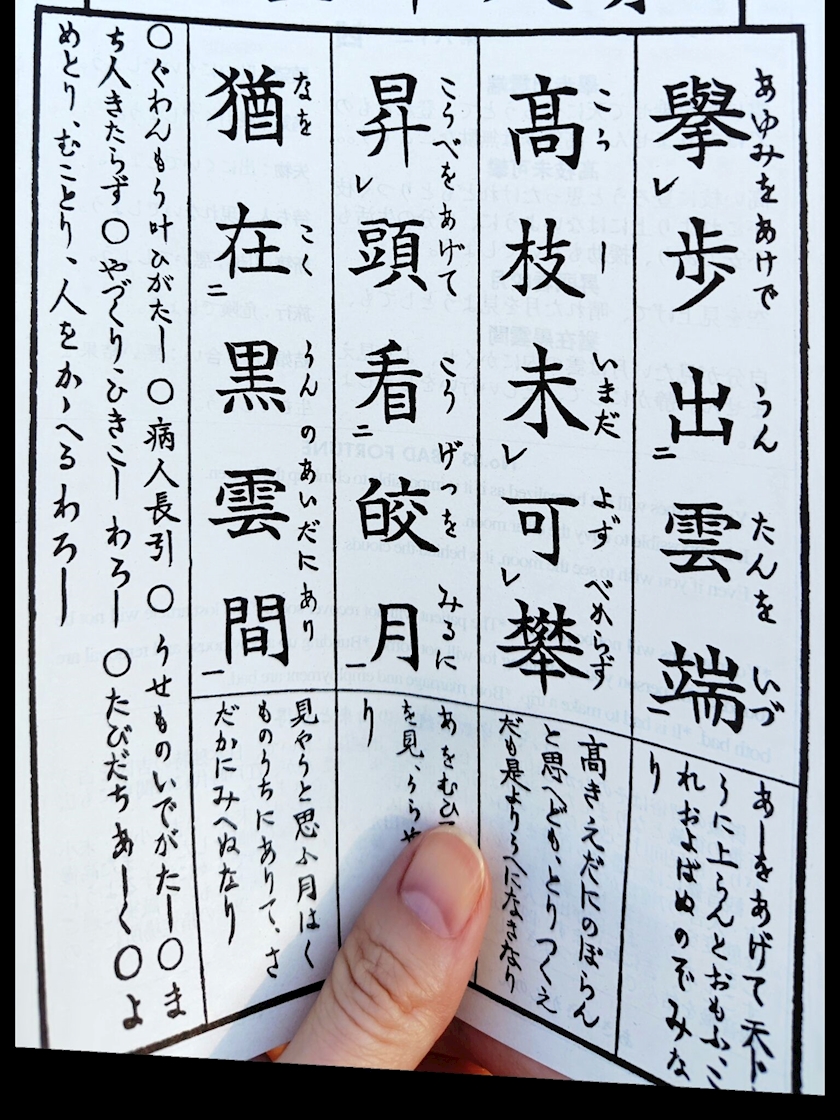 擧歩出雲端
あゆみをあけで うん たんを いづ
レ 二 一
あーをあげて天上
うに上らんとおもふ、こ
れおよばぬのぞみな
り
髙枝未可攀
こうー いまだ よぢ べからず
レ レ
髙きえだにのぼらん
と思へども、とりつくえ
だも是よりうへになきなり
昇頭看皎月
こうべをあげて こう げつを みるに
レ 二 一
あをむひ
を見、うらや
り
猶在黒雲間
なを こくうんのあいだにあり
二
見やうと思ふ月はく
ものうちにありて、さ
だかにみへぬなり
〇ぐわんもう叶ひがたー 〇病人長引 〇うせものいでがたー〇ま
ち人きたらず 〇やづくりひきこー わろー 〇たびだちあーく〇よ
めとり、むことり、人をかゝへるわろー